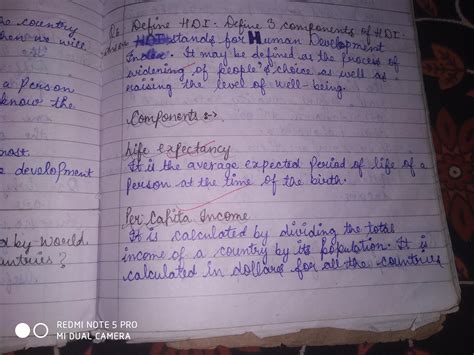 the country
when we will
a Person
know the
most.
e development
d by World
countries?
Q: Define HDI. Define 3 components of HDI.
HDI stands for Human Development
Index. It may be defined as the process of
widening of people's choice as well as
raising the level of well-being.
Components :→
Life expectancy
It is the average expected Period of life of a
person at the time of the birth.
Per Capita Income
It is calculated by dividing the total
income of a country by its population. It is
calculated in dollars for all the countries
REDMI NOTE 5 PRO
MI DUAL CAMERA